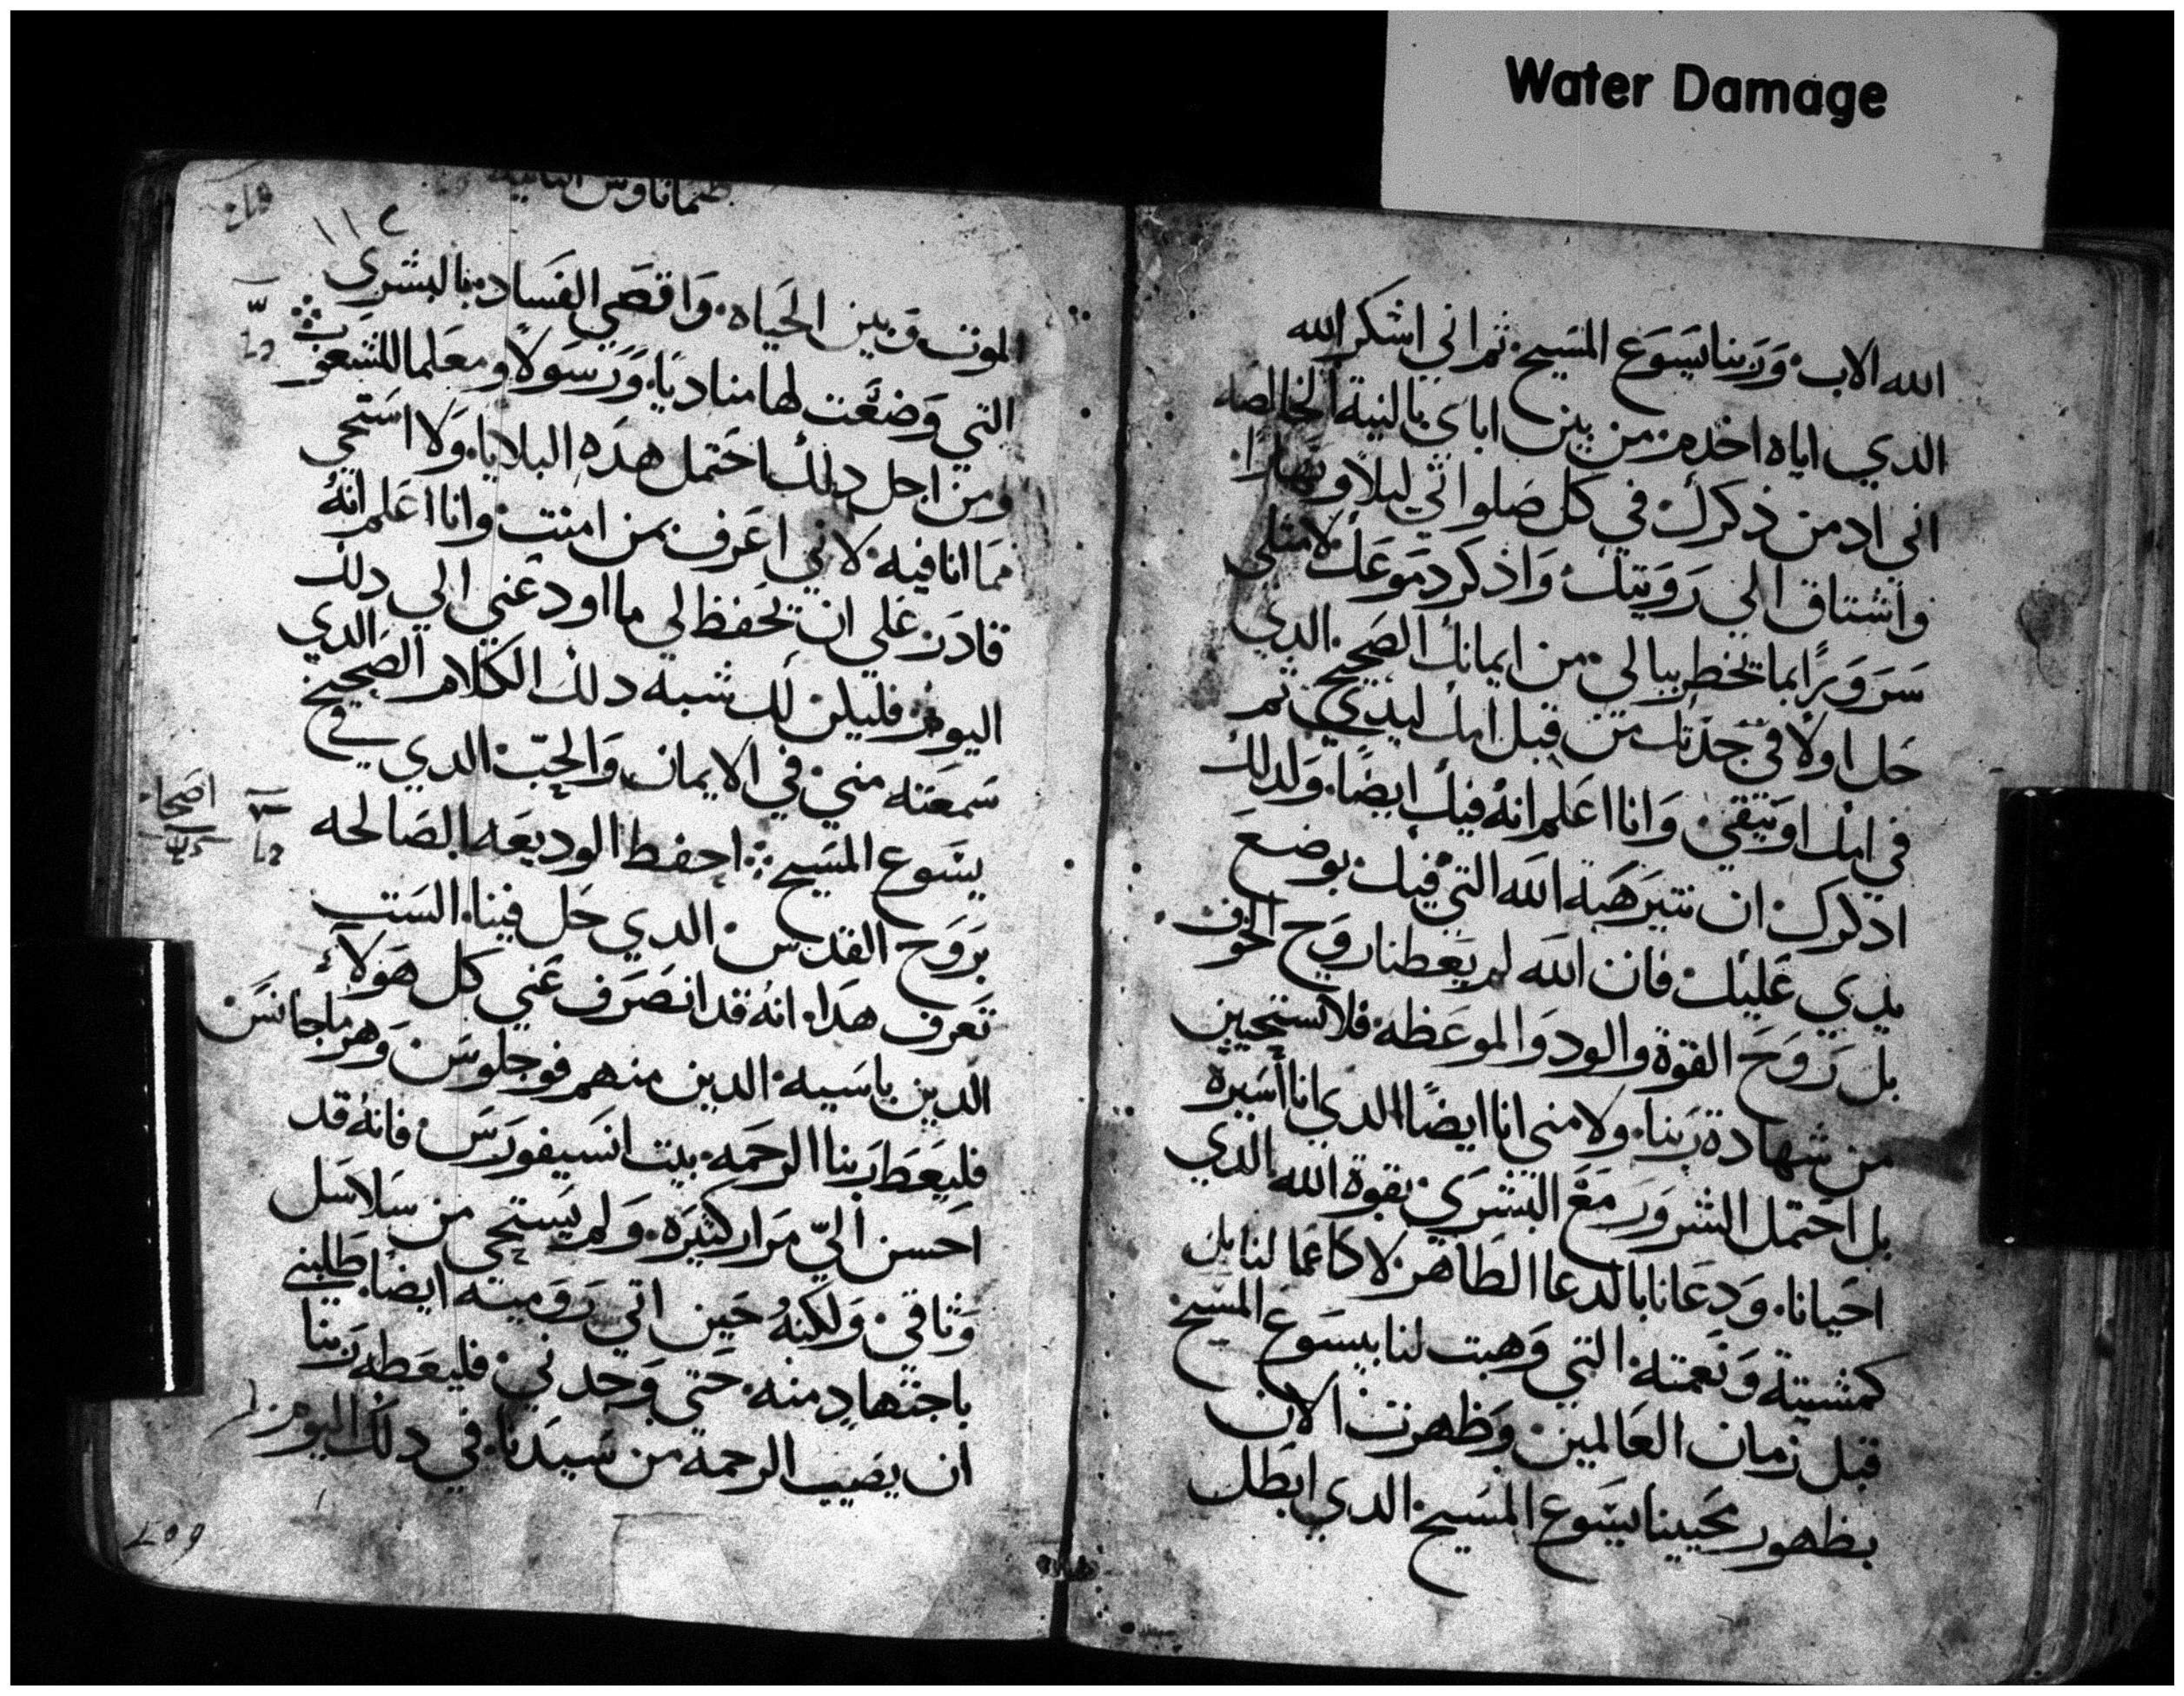 Water Damage
الله الاب وَرَبنا يسَوَع المسَيح ثم اني اشكر الله
الدي اياه اخدم من بين اباي بالنية الخالصه
اني ادمن ذكرك في كل صَلواتي ليلاً ونهارًا
واشتاق الي رَوَيتك وَاذكر دموَعَك لامتلي
سَرَوَرًا بما يخطر ببالي من ايمانك الصَحيح الدي
حَل اولاً في جدتك من قبل امك ليدي ثم
في امك اونيقي وَانا اعَلم انهُ فيك ايضًا وَلدلك
ادكرك ان تتير هَبة الله التي فيك بوضعَ
يدي عَليك فان الله لم يَعطنا روَح الخوف
بل رَوَحَ القوة والود وَالموعَظه فلا تستحيين
من شهادة رَبنا ولا مني انا ايضًا الدي انا اسَيره
بل احَتمل الشرورَ مَعَ البشرَي بقوة الله الدي
احَيانا وَدعَانا بالدعا الطاهر لا كاعَمالنا بل
كمشيته وَنعَمته التي وَهبت لنا بيسَوع المسَيح
قبل زمان العَالمين وَظهرت الان
بظهور محَيينا يسَوع المسَيح الدي ابَطل
طيماتاوس الثانية
١١٢
الموت وَبين الحَياه وَاقصَي الفسَاد بالبشرَي
التي وَضعَت لها مناديًا وَرَسَولاً ومعَلما للشعَوب
ومن اجل دلك احَتمل هدَه البلايا وَلا استحَي
مما انا فيه لاني اعَرف بمن امنت وانا اعَلم انهُ
قادرَ عَلي ان يحَفظ لي ما اودعَني الي دلك
اليوم فليكن لك شبه دلك الكلام الصَحيح الدي
سَمعَته مني في الايمان وَالحَبّ الدي في
يسَوع المسَيح احفظ الوديعَه الصَالحه
اصَحاح
برَوَح القدس الدي حَل فينا الستَ
تَعرف هدَا انهُ قد انصَرَف عَني كل هَولاء
الدين باسَيه الدين منهم فوجلوسَ وَهرماجانسَ
فليعَط رَبنا الرحَمه بيت انسَيفورَسَ فانهُ قد
احَسن اليّ مَرار كثيرَه وَلم يستحَي من سَلاسَل
وَثاقي وَلكنهُ حَين اتي رَوَميته ايضًا طلبني
باجتهاد منه حَتي وَجدني فليعَطه رَبنا
ان يصَيب الرحمة من سَيدنا في دلك اليوم